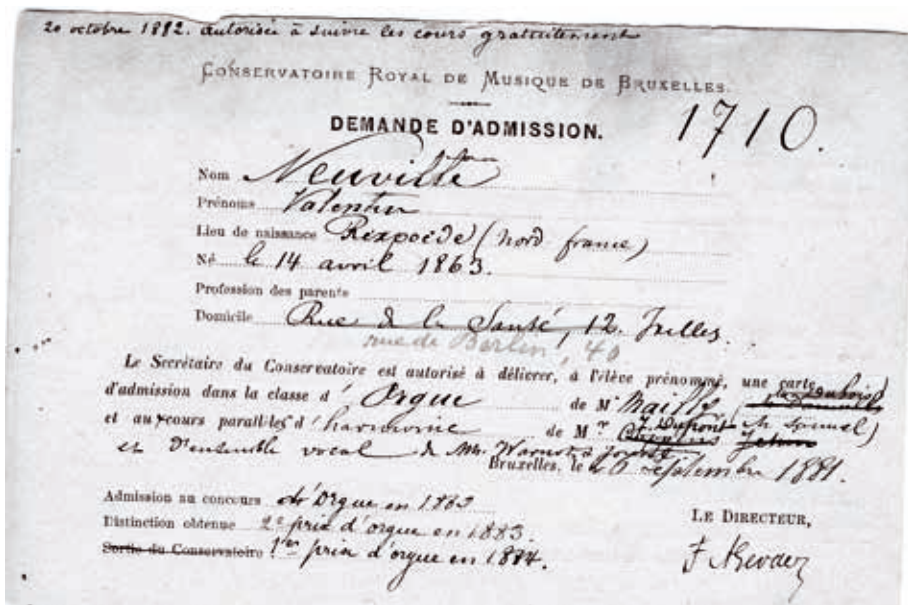 20 octobre 1882. autorisée à suivre les cours gratuitement
CONSERVATOIRE ROYAL DE MUSIQUE DE BRUXELLES.
DEMANDE D'ADMISSION.
1710.
Nom Neuville
Prénoms Valentin
Lieu de naissance Rexpoëde (Nord france)
Né le 14 avril 1863.
Profession des parents
Domicile Rue de la Santé, 12. Ixelles.
rue de Berlin, 40
Le Secrétaire du Conservatoire est autorisé à délivrer, à l'élève prénommé, une carte
d'admission dans la classe d'Orgue de Mr Mailly
et aux cours parallèles d'harmonie de Mr J. Dupont
et d'ensemble vocal de Mr. Warnots
Bruxelles, le 6 Septembre 1881.
Admission au concours d'Orgue en 1883
Distinction obtenue 2e prix d'orgue en 1883.
Sortie du Conservatoire 1er prix d'orgue en 1884.
LE DIRECTEUR,
F. A. Gevaert